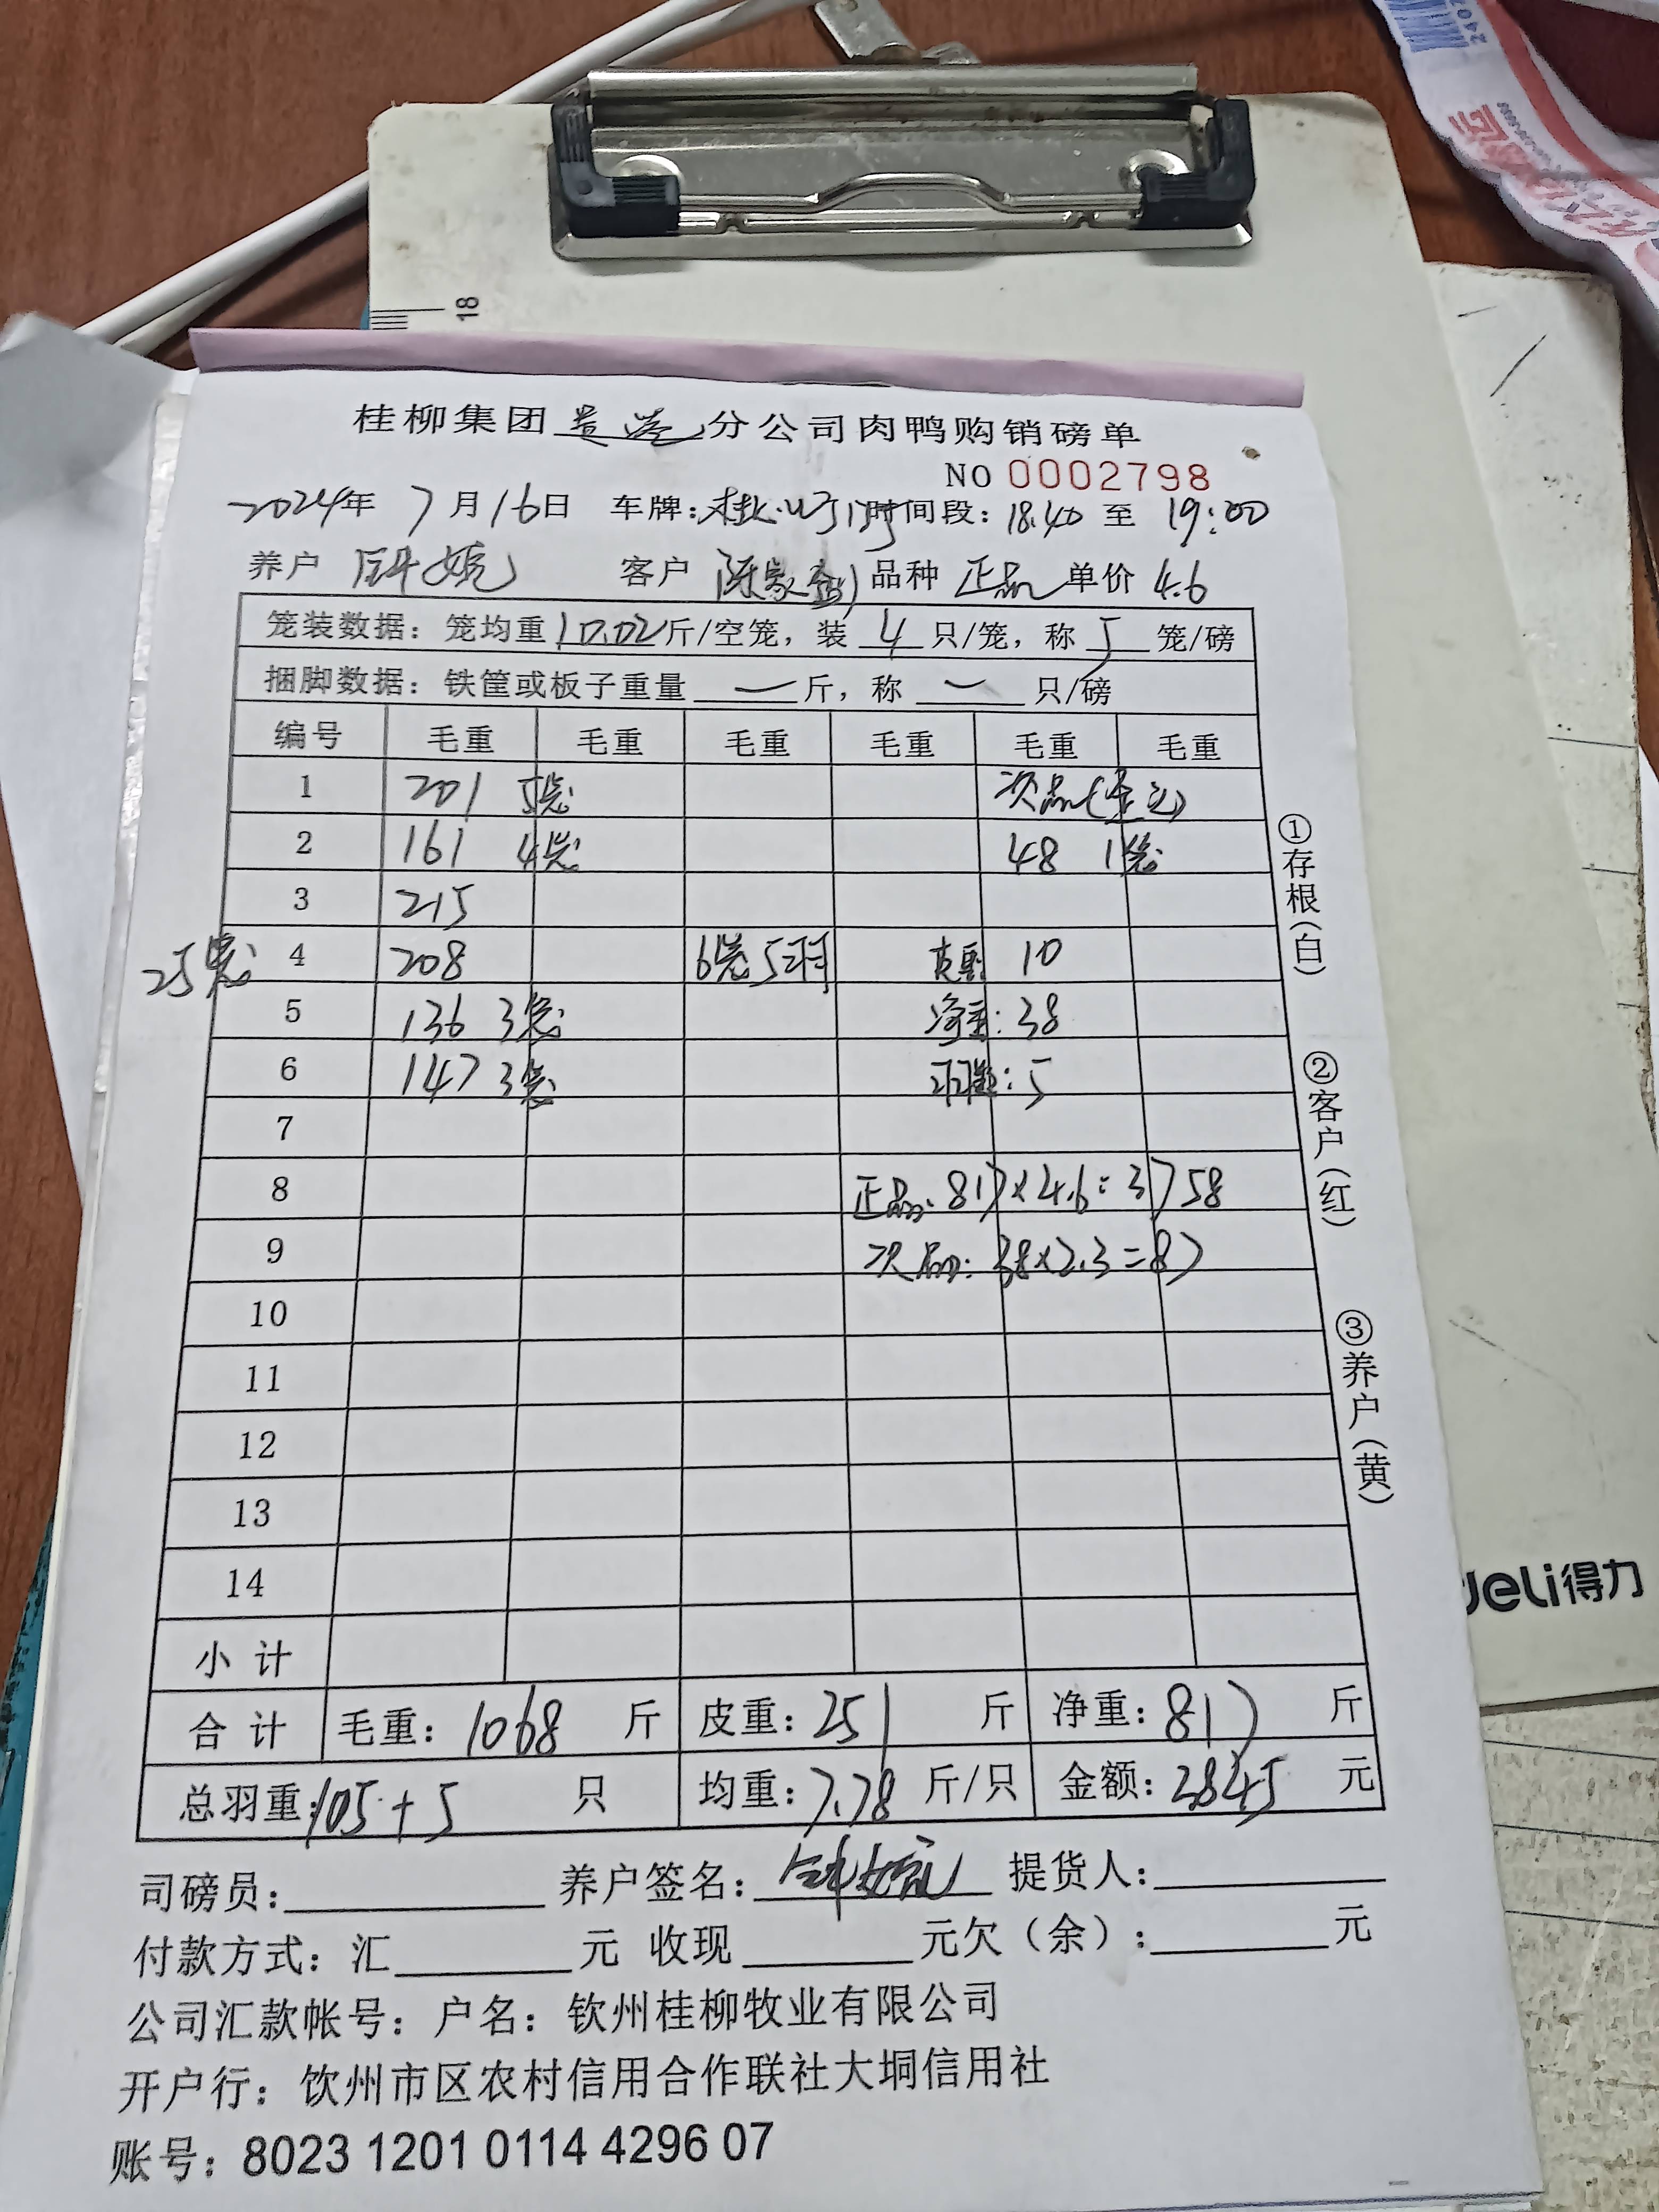 18
桂柳集团 分公司肉鸭购销磅单
NO 0002798
2024年 7月16日 车牌: 时间段: 18:40 至 19:00
养户 钟婉 客户 陈家 品种 正品 单价 4.6
笼装数据: 笼均重 10.02 斤/空笼, 装 4 只/笼, 称 5 笼/磅
捆脚数据: 铁筐或板子重量 一 斤, 称 一 只/磅
编号 毛重 毛重 毛重 毛重 毛重 毛重
1 201 5笼 次品
2 161 4笼 48 1笼
3 215
25笼 4 208 6笼5羽 皮重 10
5 136 3笼 净重: 38
6 147 3笼 羽数: 5
7
8 正品: 817×4.6=3758
9 次品: 38×2.3=87
10
11
12
13
14
小计
合计 毛重: 1068 斤 皮重: 251 斤 净重: 817 斤
总羽重: 105+5 只 均重: 7.78 斤/只 金额: 3845 元
①存根(白)
②客户(红)
③养户(黄)
司磅员: 养户签名: 钟婉 提货人:
付款方式: 汇 元 收现 元欠(余): 元
公司汇款帐号: 户名: 钦州桂柳牧业有限公司
开户行: 钦州市区农村信用合作联社大垌信用社
账号: 8023 1201 0114 4296 07
deli得力